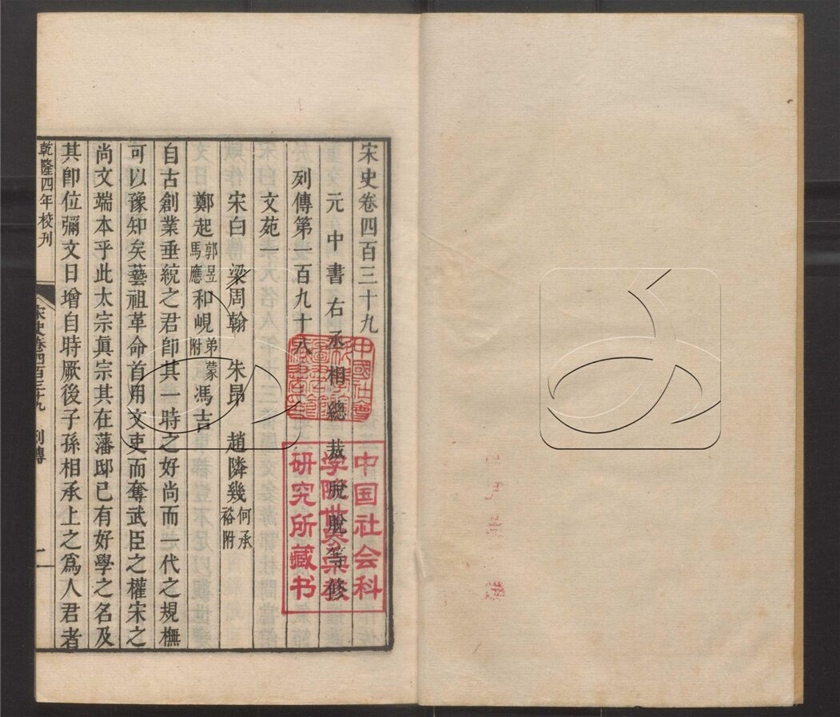 宋史卷四百三十九
元中書右丞相總裁脫脫等修
列傳第一百九十八
文苑一
宋白 梁周翰 朱昂 趙隣幾 何承裕附
鄭起 郭昱 馬應 和峴 弟㠓附 馮吉
自古創業垂統之君即其一時之好尚而一代之規橅
可以豫知矣藝祖革命首用文吏而奪武臣之權宋之
尚文端本乎此太宗真宗其在藩邸已有好學之名及
其即位彌文日增自時厥後子孫相承上之爲人君者
乾隆四年校刊
宋史卷四百三十九 列傳
一
中国社会科
学院世界宗教
研究所藏书